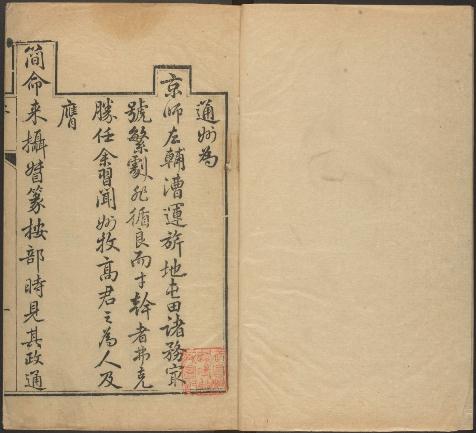 通州為
京師左輔漕運旂地屯田諸務最
號繁劇非循良而才幹者弗克
勝任余習聞州牧高君之為人及
膺
簡命来攝督篆按部時見其政通